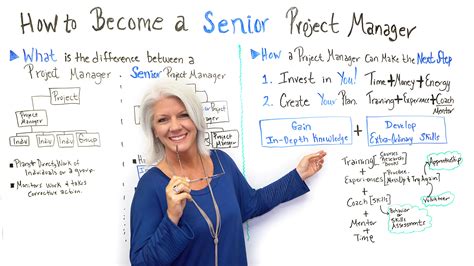 How to Become a Senior Project Manager
What is the difference between a
Project Manager
Senior Project Manager
Project
Project
Manager
Indiv
Indiv
Group
Project
• Directs Work of
Individuals or a group.
• Monitors Work & takes
corrective action.
How a Project Manager Can Make the Next Step
1. Invest in You! Time + Money + Energy
2. Create Your Plan. Training + Experience + Coach
Mentor
Gain
In-Depth Knowledge
+
Develop
Extra-Ordinary Skills
Training
Courses
Research
Books
+
Experiences
+
Coach [Skills]
Behavior
or
Skills
Assessments
+
Mentor
+
Time
Apprenticeship
Volunteer